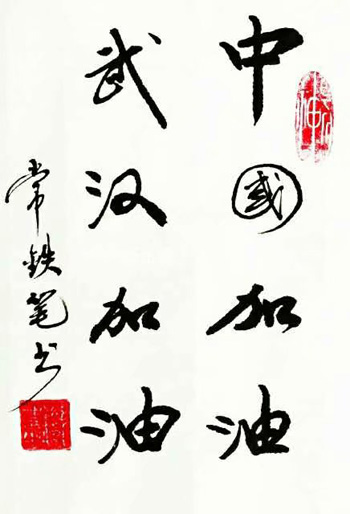 中國加油
武汉加油
常铁笔书